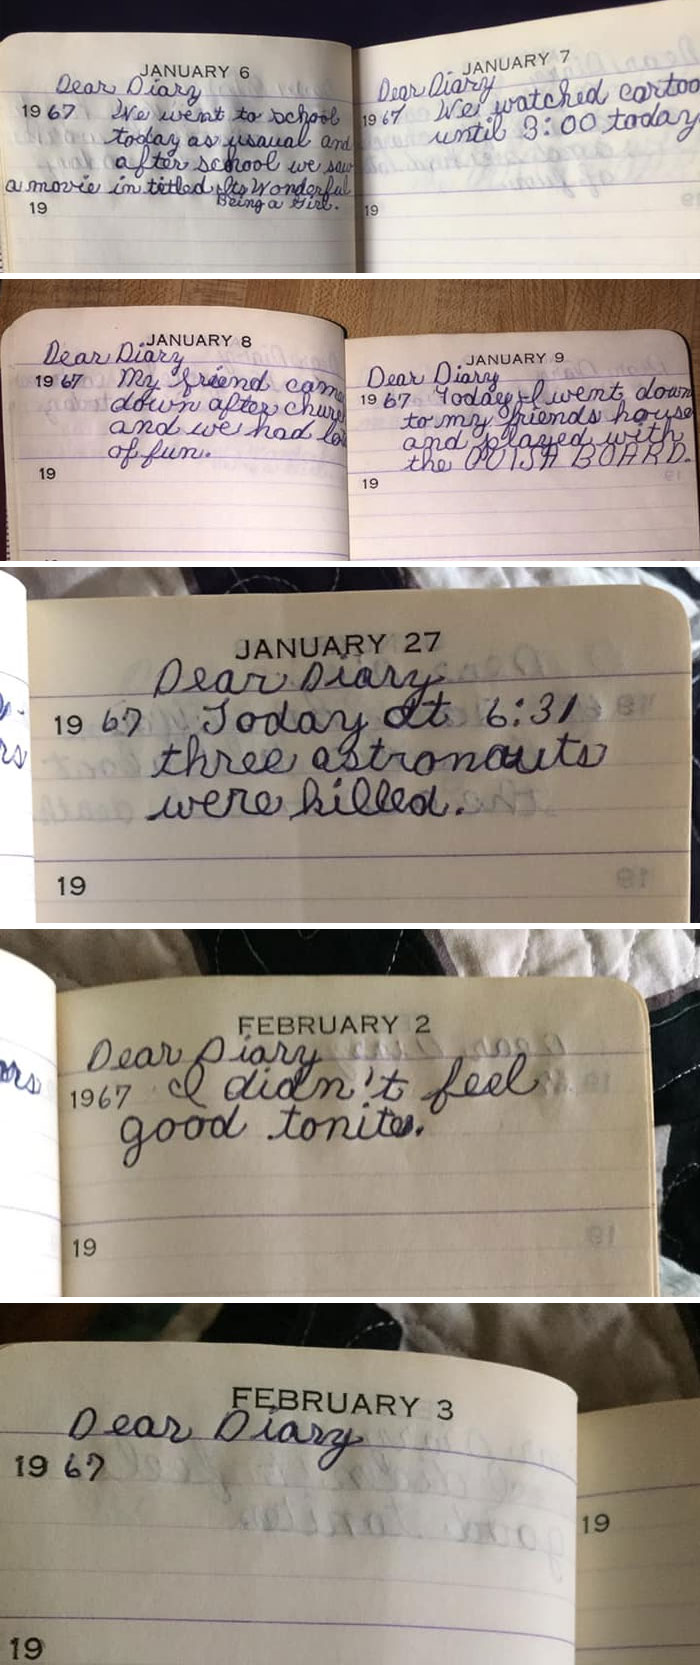 JANUARY 6
Dear Diary
19 67 We went to school
today as usaual and
after school we saw
a movie in titled Its Wonderful
Being a Girl.
19
JANUARY 7
Dear Diary
19 67 We watched cartoo
until 3:00 today
19
JANUARY 8
Dear Diary
19 67 My friend came
down after church
and we had lo
of fun.
19
JANUARY 9
Dear Diary
19 67 Today I went down
to my friends house
and played with
the OUIJA BOARD.
19
JANUARY 27
Dear Diary
19 67 Today at 6:31
three astronauts
were killed.
19
FEBRUARY 2
Dear Diary
1967 I didn't feel
good tonite.
19
FEBRUARY 3
Dear Diary
19 67
19
19